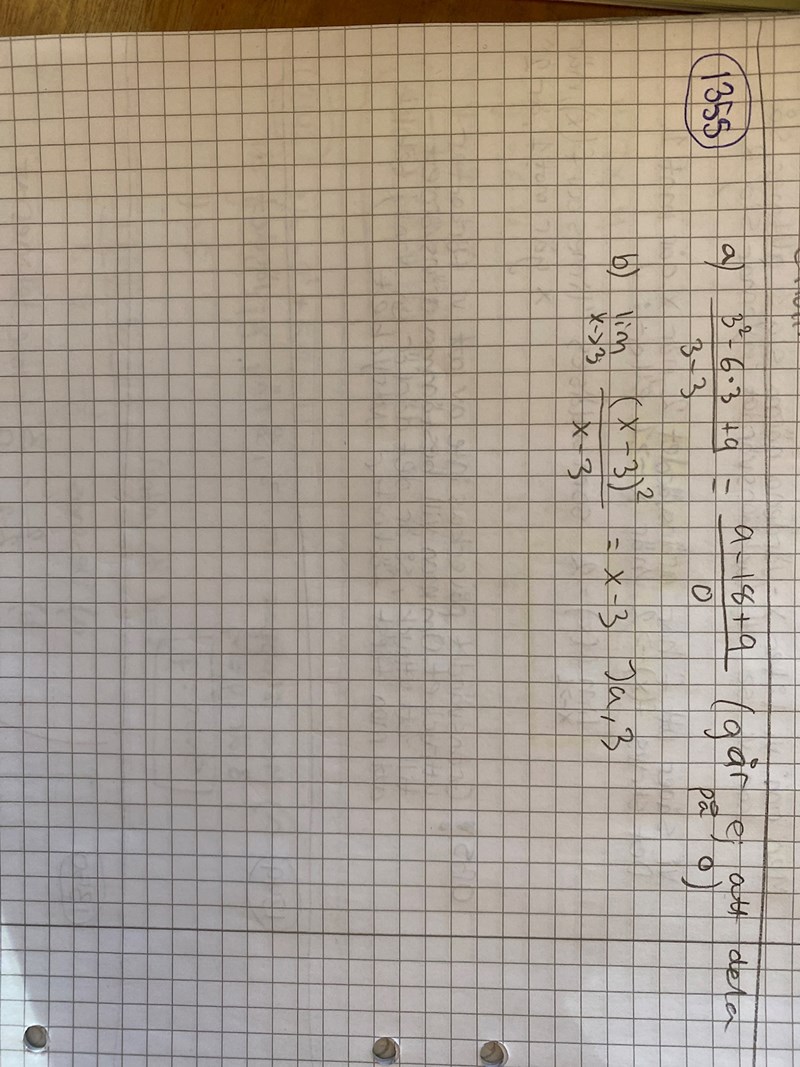 1355
a) 3² - 6·3 + 9 / 3 - 3 = 9 - 18 + 9 / 0 (går ej att dela på 0)
b) lim x→3 (x - 3)² / x - 3 = x - 3 Ja, 3